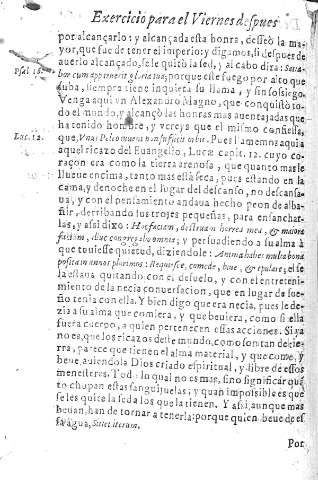 Exercicio para el Viernes despues
por alcançarlo: y alcançada esta honra, desseò la ma-
yor, que fue de tener el imperio: y digamos, si despues de
auerlo alcançado, se le quitò la sed, y al cabo dira: Satia-
Psal. 16.
bor cum apparuerit gloria tua; porque este fuego por alto que
suba, siempre tiene inquieta su llama, y sin sossiego.
Venga aqui vn Alexandro Magno, que conquistò to-
do el mundo, y alcançò las honras mas auentajadas que
ha tenido hombre, y vereys que el mismo confiessa,
Luc. 12.
que, Vnus Peleo iuueni non sufficit orbis. Pues llamemos aqui a
aquel ricazo del Euangelio, Lucæ capit. 12. cuyo co-
raçon era como la tierra arenosa, que quanto mas le
llueue encima, tanto mas està seca; pues estando en la
cama, y de noche en el lugar del descanso, no descansa-
ua, y con el pensamiento andaua hecho peon de alba-
ñir, derribando sus trojes pequeñas, para ensanchar-
las, y assi dixo: Hoc faciam, destruam horrea mea, & maiora
faciam, illuc congregabo omnia; y persuadiendo a su alma à
que tuuiesse quietud, diziendole: Anima habes multa bona
posita in annos plurimos: Requiesce, comede, bibe, & epulare; el se
la estaua quitando con el desuelo, y con el entreteni-
miento de la necia conuersacion, que en lugar de sue-
ño tenia con ella. Y bien digo que era necia, pues le de-
zia a su alma que comiera, y que beuiera, como si ella
fuera cuerpo, a quien pertenecen essas acciones. Si ya
no es, que los ricazos deste mundo, como son tan de tie-
rra, parece que tienen el alma material, y que come, y
beue, auiendola Dios criado espiritual, y libre de essos
menesteres. Todo lo qual no es mas, sino significar que
to chupan essas sanguijuelas; y quan impossible es que
se les quite la sed a los que la tienen. Y assi, aunque mas
beuan, han de tornar a tenerla: porque quien beue de es-
sa agua, Sitiet iterum.
Por